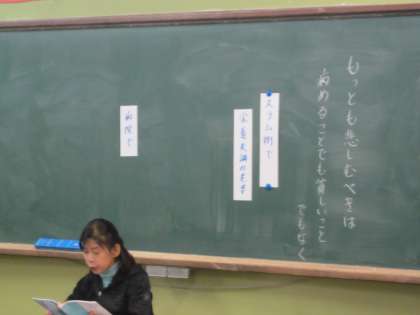 もっとも悲しむべきは
病めることでも貧しいこと
でもなく
スラム街で
病院で